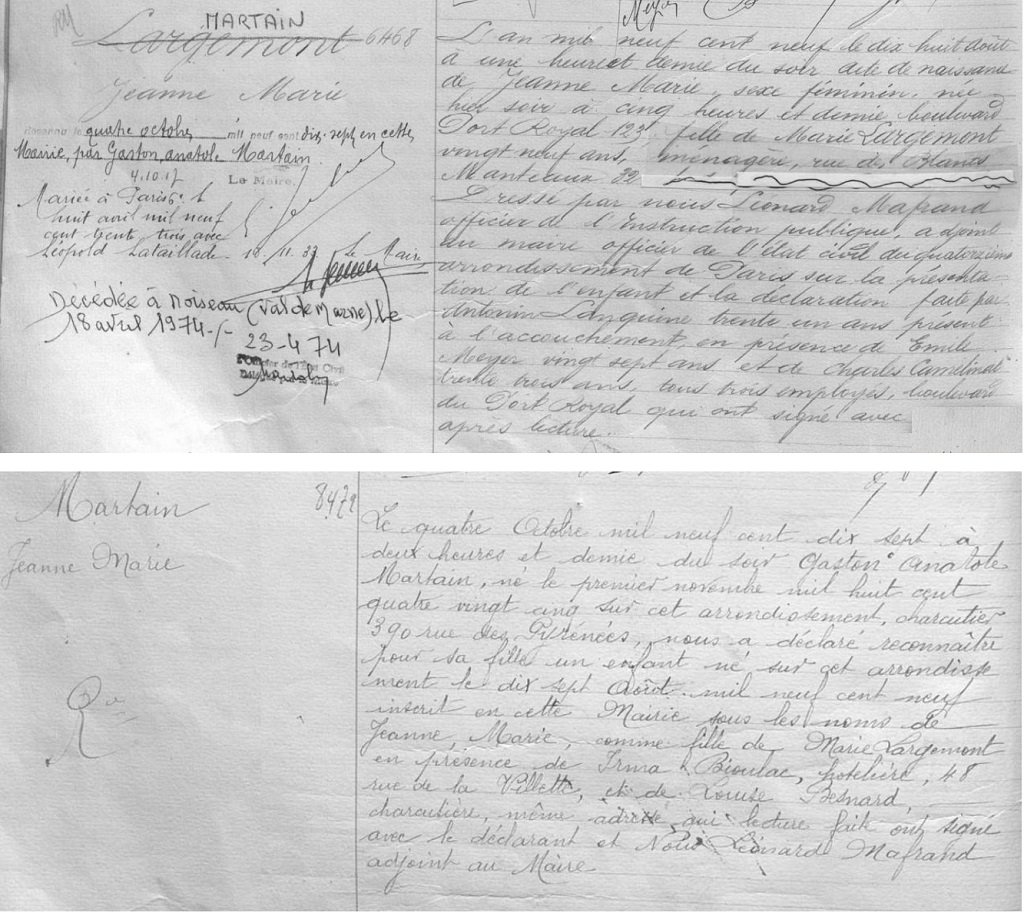 Meyer
MARTAIN
Largemont 6468
Jeanne Marie
Reconnue le quatre octobre mil neuf cent dix-sept en cette
Mairie, par Gaston, anatole Martain.
4.10.17
Le Maire,
Mariée à Paris le
huit avril mil neuf
cent trente trois avec
Léopold Lataillade. Le Maire
Décédée à Noiseau (Val de Marne) le
18 avril 1974.-/-
23-4 74
L'an mil neuf cent neuf le dix huit août
à une heure et demie du soir acte de naissance
de Jeanne Marie, sexe féminin, née
hier soir à cinq heures et demie, boulevard
Port Royal 123, fille de Marie Largemont
vingt neuf ans, ménagère, rue des Blancs
Manteaux 22
Dressé par nous Léonard Mafrand
officier de l'Instruction publique, adjoint
au maire officier de l'état civil du quatorzième
arrondissement de Paris sur la présenta-
tion de l'enfant et la déclaration faite par
Antonin Languine trente un ans présent
à l'accouchement, en présence de Emile
Meyer vingt sept ans et de Charles Camélinat
trente trois ans, tous trois employés, boulevard
du Port Royal qui ont signé avec
après lecture.
Martain 8472
Jeanne Marie
Le quatre Octobre mil neuf cent dix sept à
deux heures et demie du soir Gaston Anatole
Martain, né le premier novembre mil huit cent
quatre vingt cinq sur cet arrondissement, charcutier
390 rue des Pyrénées, nous a déclaré reconnaître
pour sa fille un enfant né sur cet arrondisse
ment le dix sept Août mil neuf cent neuf
inscrit en cette Mairie sous les noms de
Jeanne, Marie, comme fille de Marie Largemont
en présence de Irma Bioulac, hotelière, 48
rue de la Villette, et de Louise Besnard,
charcutière, même adresse qui lecture faite ont signé
avec le déclarant et Nous Léonard Mafrand
adjoint au Maire